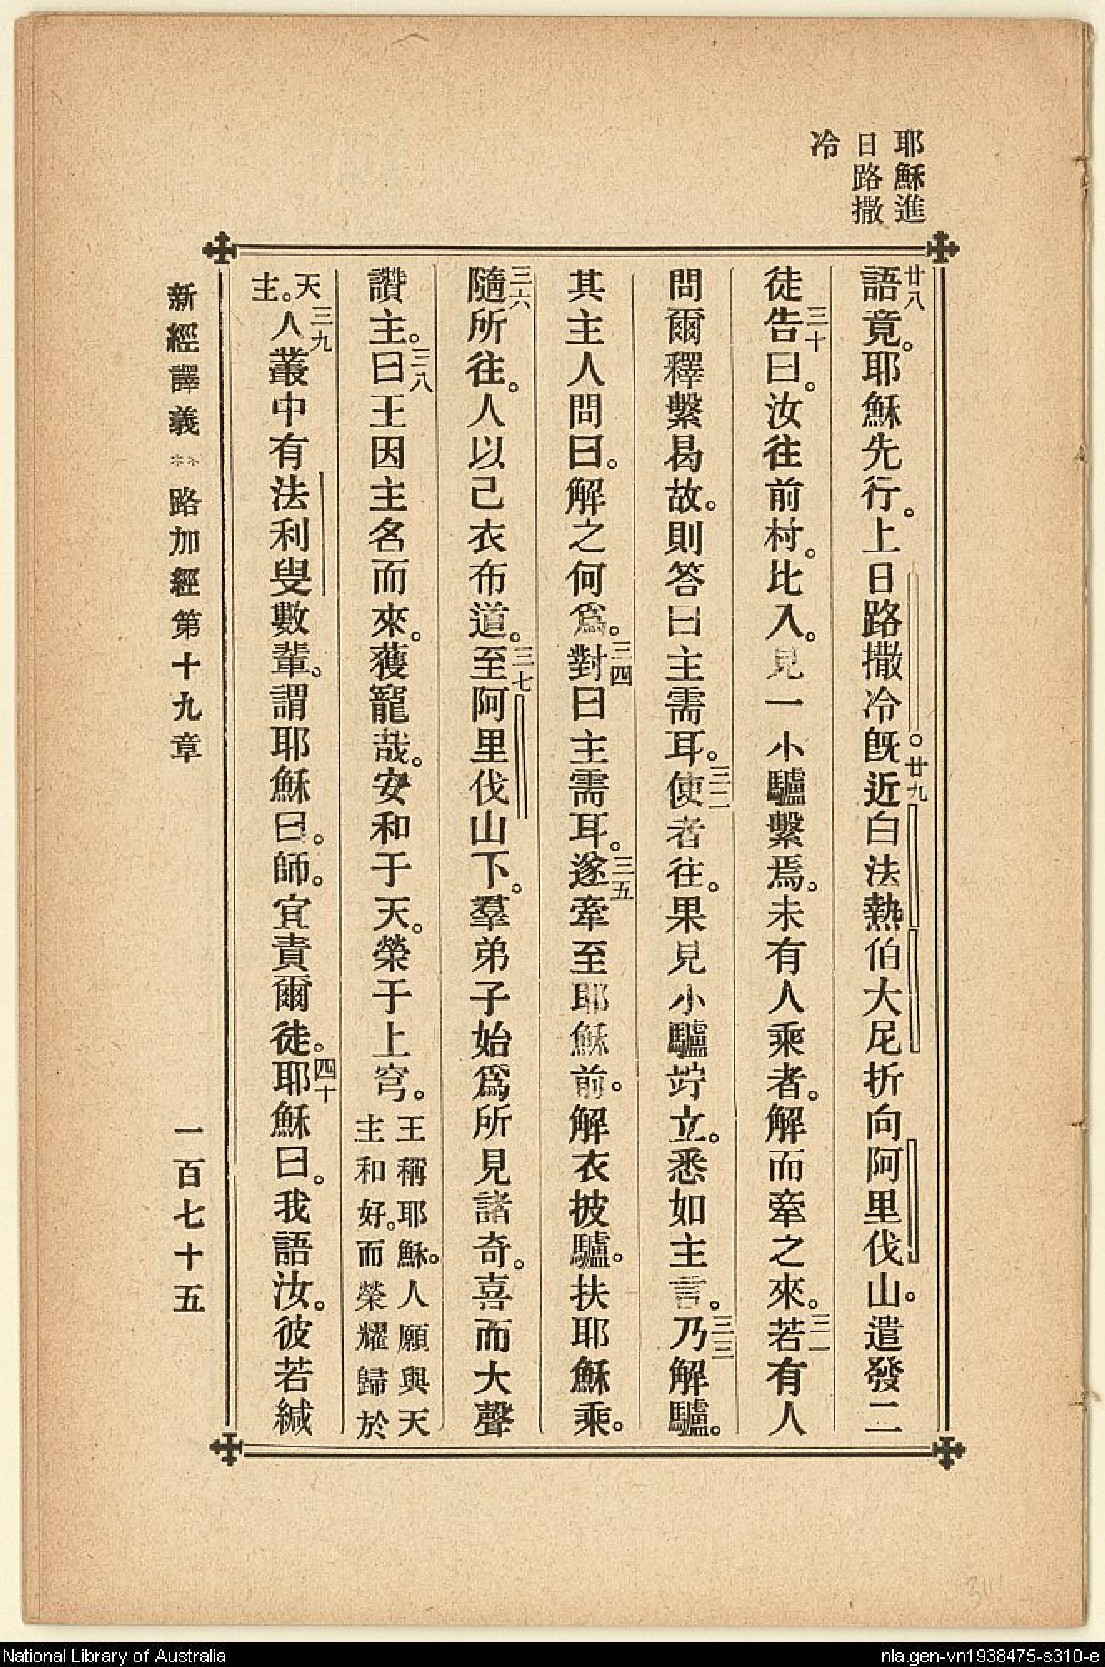 耶穌進
日路撒
冷
廿八語竟。耶穌先行。上日路撒冷。廿九旣近白法熱伯大尼折向阿里伐山。遣發二
徒三十告曰。汝往前村。比入。見一小驢繫焉。未有人乘者。解而牽之來。三一若有人
問爾釋繫曷故。則答曰主需耳。三二使者往。果見小驢竚立。悉如主言。三三乃解驢。
其主人問曰。解之何爲。三四對曰主需耳。三五遂牽至耶穌前。解衣披驢。扶耶穌乘。
三六隨所往。人以己衣布道。三七至阿里伐山下。羣弟子始爲所見諸奇。喜而大聲
讚主。三八曰王因主名而來。獲寵哉。安和于天。榮于上穹。王稱耶穌。人願與天主和好。而榮耀歸於
天主。三九人叢中有法利叟數輩。謂耶穌曰。師。宜責爾徒。四十耶穌曰。我語汝。彼若緘
新經譯義 ** 路加經第十九章 一百七十五
311
National Library of Australia
nla.gen-vn1938475-s310-e